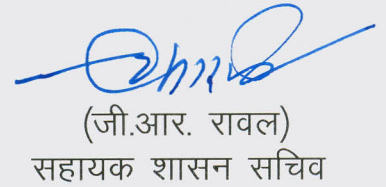 (जी.आर. रावल)
सहायक शासन सचिव